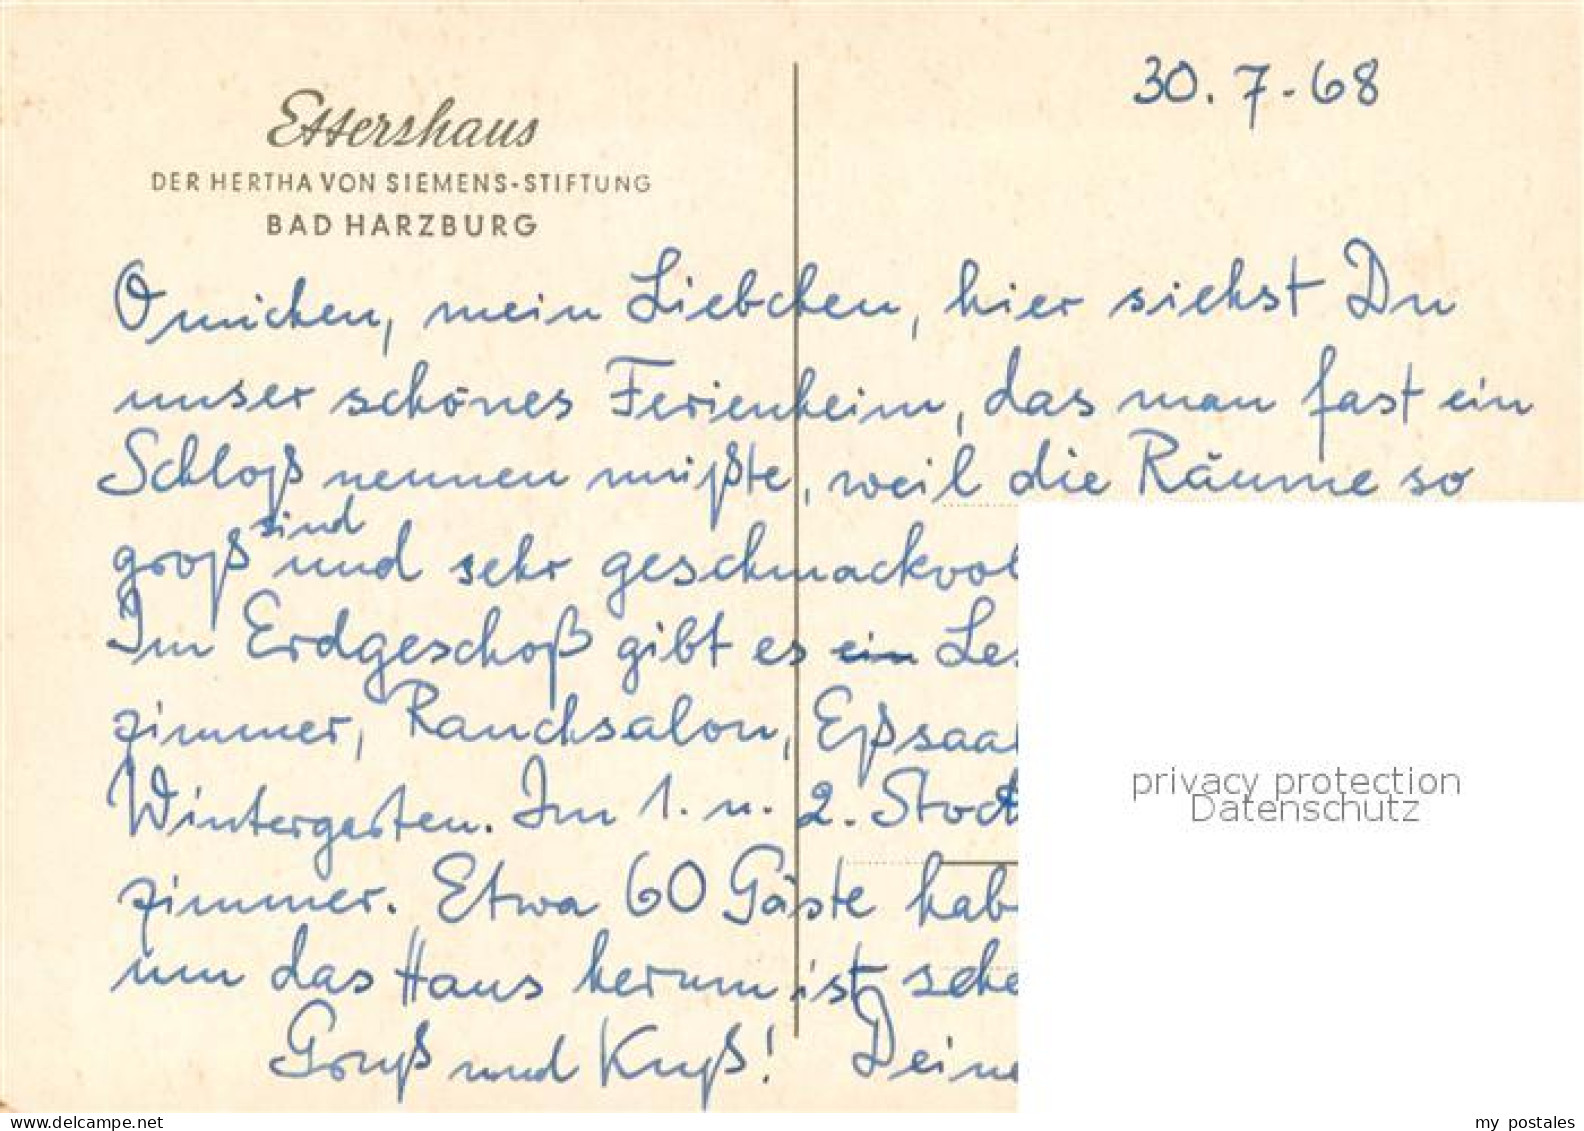 30.7-68
Ettershaus
DER HERTHA VON SIEMENS-STIFTUNG
BAD HARZBURG
Omichen, mein Liebchen, hier siehst Du
unser schönes Ferienheim, das man fast ein
Schloß nennen müßte, weil die Räume so
groß sind und sehr geschmackvol
Im Erdgeschoß gibt es ein Les
zimmer, Rauchsalon, Eßsaal
Wintergarten. Im 1. u. 2. Stock
zimmer. Etwa 60 Gäste hab
um das Haus herum ist sehr
Gruß und Kuß! Deine
privacy protection
Datenschutz
my postales